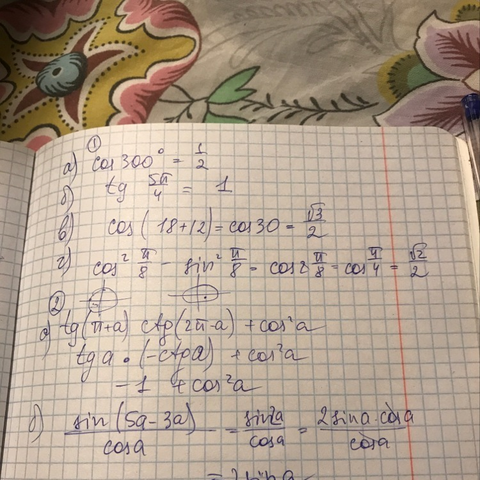 ①
а) cos 300° = 1/2
б) tg 5π/4 = 1
в) cos(18+12) = cos 30 = √3/2
г) cos² π/8 - sin² π/8 = cos 2 π/8 = cos π/4 = √2/2
②
а) tg(π+a) ctg(2π-a) + cos²a
tg a • (-ctg a) + cos²a
-1 + cos²a
б) sin(5a-3a)/cos a = sin2a/cos a = 2 sin a · cos a/cos a
= 2 sin a